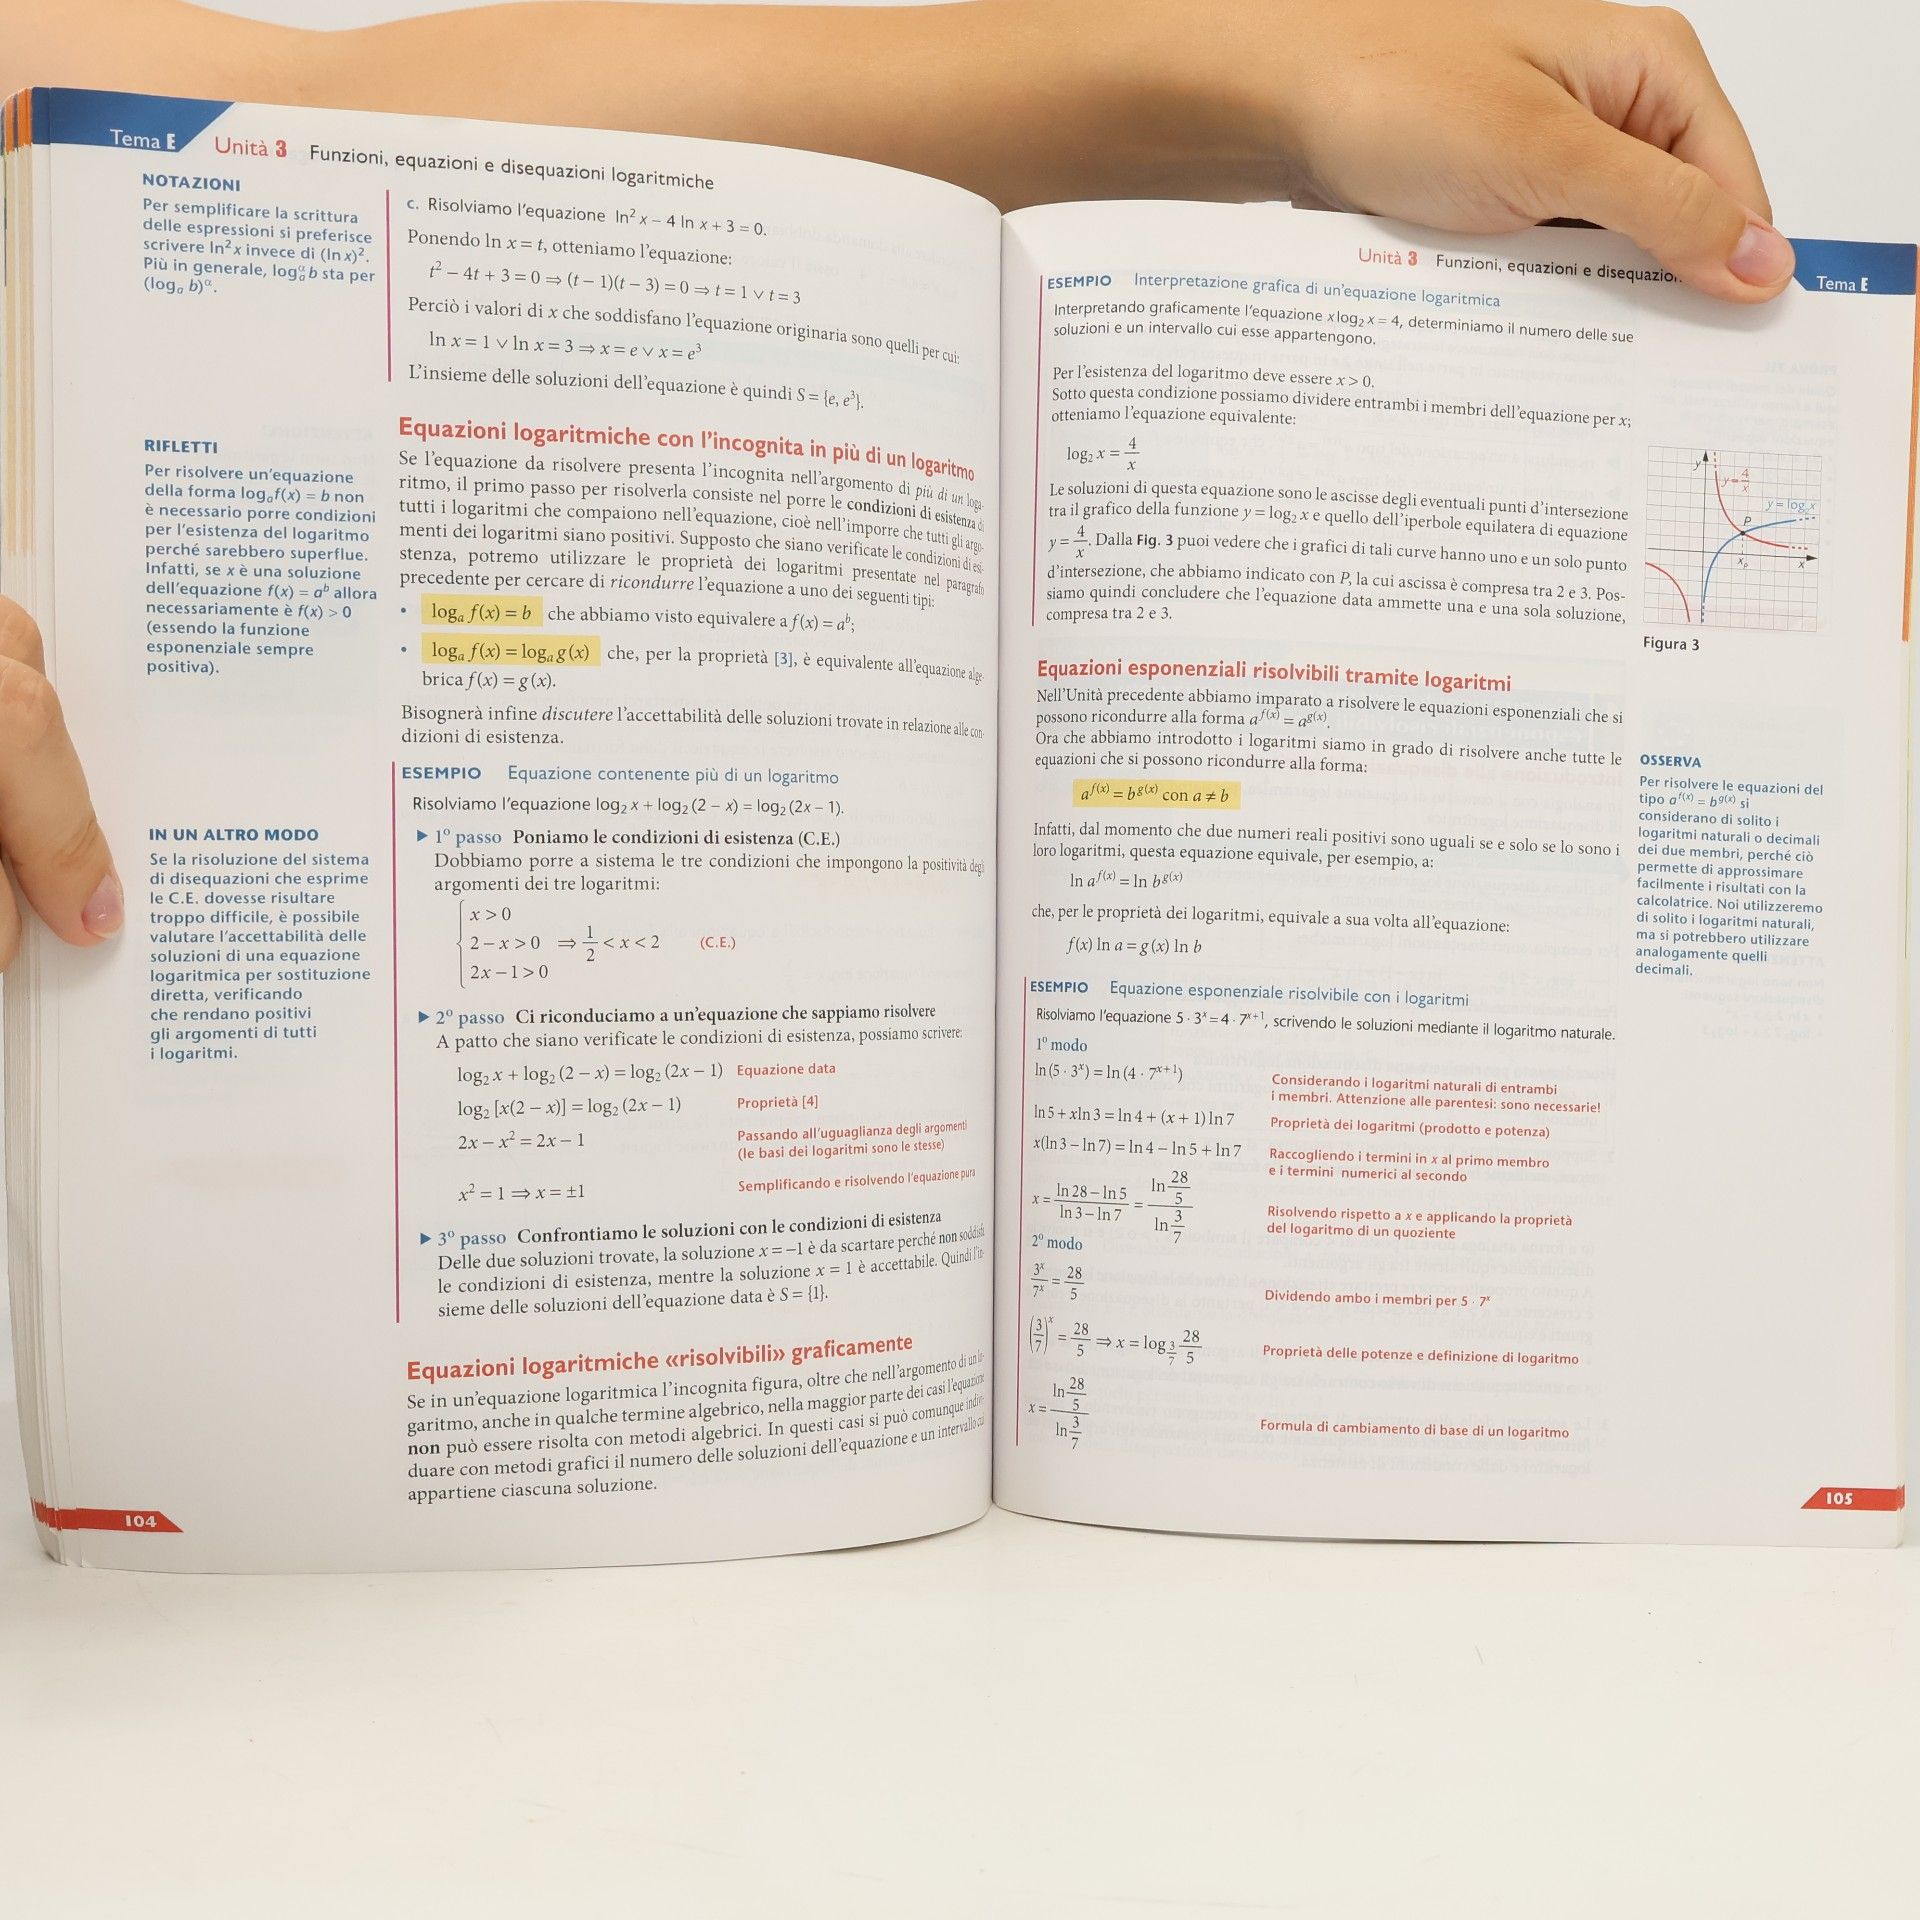 Tema E
Unità 3 Funzioni, equazioni e disequazioni logaritmiche
NOTAZIONI
Per semplificare la scrittura
delle espressioni si preferisce
scrivere ln² x invece di (ln x)².
Più in generale, logₐ^α b sta per
(logₐ b)^α.
c. Risolviamo l'equazione ln² x – 4 ln x + 3 = 0.
Ponendo ln x = t, otteniamo l'equazione:
t² – 4t + 3 = 0 ⇒ (t – 1)(t – 3) = 0 ⇒ t = 1 ∨ t = 3
Perciò i valori di x che soddisfano l'equazione originaria sono quelli per cui:
ln x = 1 ∨ ln x = 3 ⇒ x = e ∨ x = e³
L'insieme delle soluzioni dell'equazione è quindi S = {e, e³}.
RIFLETTI
Per risolvere un'equazione
della forma logₐf(x) = b non
è necessario porre condizioni
per l'esistenza del logaritmo
perché sarebbero superflue.
Infatti, se x è una soluzione
dell'equazione f(x) = a^b allora
necessariamente è f(x) > 0
(essendo la funzione
esponenziale sempre
positiva).
Equazioni logaritmiche con l'incognita in più di un logaritmo
Se l'equazione da risolvere presenta l'incognita nell'argomento di più di un loga-
ritmo, il primo passo per risolverla consiste nel porre le condizioni di esistenza di
tutti i logaritmi che compaiono nell'equazione, cioè nell'imporre che tutti gli argo-
menti dei logaritmi siano positivi. Supposto che siano verificate le condizioni di esi-
stenza, potremo utilizzare le proprietà dei logaritmi presentate nel paragrafo
precedente per cercare di ricondurre l'equazione a uno dei seguenti tipi:
• logₐ f(x) = b che abbiamo visto equivalere a f(x) = a^b;
• logₐ f(x) = logₐ g(x) che, per la proprietà [3], è equivalente all'equazione alge-
brica f(x) = g(x).
Bisognerà infine discutere l'accettabilità delle soluzioni trovate in relazione alle con-
dizioni di esistenza.
IN UN ALTRO MODO
Se la risoluzione del sistema
di disequazioni che esprime
le C.E. dovesse risultare
troppo difficile, è possibile
valutare l'accettabilità delle
soluzioni di una equazione
logaritmica per sostituzione
diretta, verificando
che rendano positivi
gli argomenti di tutti
i logaritmi.
ESEMPIO Equazione contenente più di un logaritmo
Risolviamo l'equazione log₂ x + log₂ (2 – x) = log₂ (2x – 1).
▶ 1° passo Poniamo le condizioni di esistenza (C.E.)
Dobbiamo porre a sistema le tre condizioni che impongono la positività degli
argomenti dei tre logaritmi:
x > 0
2 – x > 0 ⇒ 1/2 < x < 2 (C.E.)
2x – 1 > 0
▶ 2° passo Ci riconduciamo a un'equazione che sappiamo risolvere
A patto che siano verificate le condizioni di esistenza, possiamo scrivere:
log₂ x + log₂ (2 – x) = log₂ (2x – 1) Equazione data
log₂ [x(2 – x)] = log₂ (2x – 1) Proprietà [4]
2x – x² = 2x – 1 Passando all'uguaglianza degli argomenti
(le basi dei logaritmi sono le stesse)
x² = 1 ⇒ x = ±1 Semplificando e risolvendo l'equazione pura
▶ 3° passo Confrontiamo le soluzioni con le condizioni di esistenza
Delle due soluzioni trovate, la soluzione x = –1 è da scartare perché non
le condizioni di esistenza, mentre la soluzione x = 1 è accettabile. Quindi l'in-
sieme delle soluzioni dell'equazione data è S = {1}.
Equazioni logaritmiche «risolvibili» graficamente
Se in un'equazione logaritmica l'incognita figura, oltre che nell'argomento di un lo-
garitmo, anche in qualche termine algebrico, nella maggior parte dei casi l'equazione
non può essere risolta con metodi algebrici. In questi casi si può comunque indivi-
duare con metodi grafici il numero delle soluzioni dell'equazione e un intervallo cui
appartiene ciascuna soluzione.
104
Unità 3 Funzioni, equazioni e
Tema E
ESEMPIO Interpretazione grafica di un'equazione logaritmica
Interpretando graficamente l'equazione x log₂ x = 4, determiniamo il numero delle sue
soluzioni e un intervallo cui esse appartengono.
Per l'esistenza del logaritmo deve essere x > 0.
Sotto questa condizione possiamo dividere entrambi i membri dell'equazione per x;
otteniamo l'equazione equivalente:
log₂ x = 4/x
Le soluzioni di questa equazione sono le ascisse degli eventuali punti d'intersezione
tra il grafico della funzione y = log₂ x e quello dell'iperbole equilatera di equazione
y = 4/x. Dalla Fig. 3 puoi vedere che i grafici di tali curve hanno uno e un solo punto
d'intersezione, che abbiamo indicato con P, la cui ascissa è compresa tra 2 e 3. Pos-
siamo quindi concludere che l'equazione data ammette una e una sola soluzione,
compresa tra 2 e 3.
y
y = 4/x
y = log₂x
P
xₚ
x
Figura 3
Equazioni esponenziali risolvibili tramite logaritmi
Nell'Unità precedente abbiamo imparato a risolvere le equazioni esponenziali che si
possono ricondurre alla forma a^f(x) = a^g(x).
Ora che abbiamo introdotto i logaritmi siamo in grado di risolvere anche tutte le
equazioni che si possono ricondurre alla forma:
a^f(x) = b^g(x) con a ≠ b
Infatti, dal momento che due numeri reali positivi sono uguali se e solo se lo sono i
loro logaritmi, questa equazione equivale, per esempio, a:
ln a^f(x) = ln b^g(x)
che, per le proprietà dei logaritmi, equivale a sua volta all'equazione:
f(x) ln a = g(x) ln b
OSSERVA
Per risolvere le equazioni del
tipo a^f(x) = b^g(x) si
considerano di solito i
logaritmi naturali o decimali
dei due membri, perché ciò
permette di approssimare
facilmente i risultati con la
calcolatrice. Noi utilizzeremo
di solito i logaritmi naturali,
ma si potrebbero utilizzare
analogamente quelli
decimali.
ESEMPIO Equazione esponenziale risolvibile con i logaritmi
Risolviamo l'equazione 5 · 3^x = 4 · 7^(x+1), scrivendo le soluzioni mediante il logaritmo naturale.
1° modo
ln (5 · 3^x) = ln (4 · 7^(x+1)) Considerando i logaritmi naturali di entrambi
i membri. Attenzione alle parentesi: sono necessarie!
ln 5 + x ln 3 = ln 4 + (x + 1) ln 7 Proprietà dei logaritmi (prodotto e potenza)
x(ln 3 – ln 7) = ln 4 – ln 5 + ln 7 Raccogliendo i termini in x al primo membro
e i termini numerici al secondo
x = (ln 28 – ln 5)/(ln 3 – ln 7) = (ln 28/5)/(ln 3/7) Risolvendo rispetto a x e applicando la proprietà
del logaritmo di un quoziente
2° modo
3^x/7^x = 28/5 Dividendo ambo i membri per 5 · 7^x
(3/7)^x = 28/5 ⇒ x = log_(3/7) 28/5 Proprietà delle potenze e definizione di logaritmo
x = (ln 28/5)/(ln 3/7) Formula di cambiamento di base di un logaritmo
105